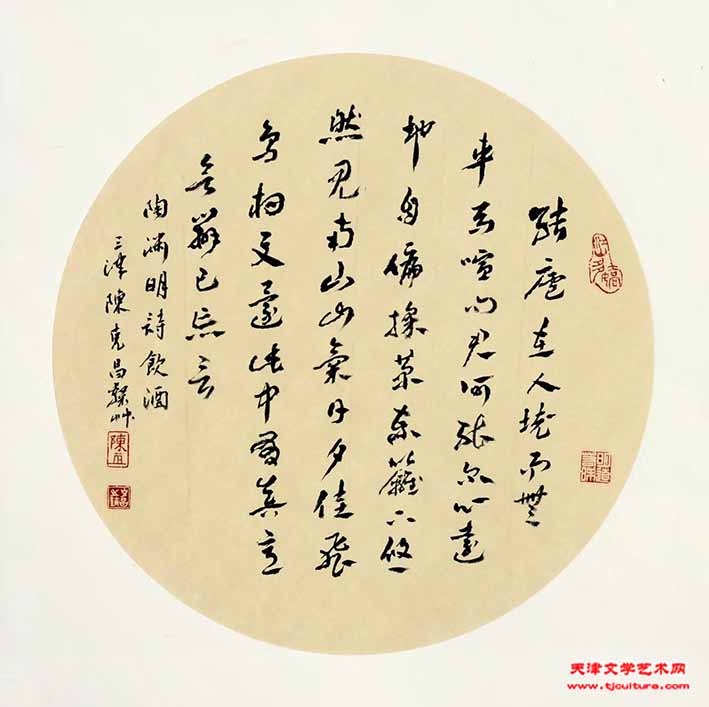 結廬在人境而無
車馬喧問君何能爾心遠
地自偏採菊東籬下悠
然見南山山氣日夕佳飛
鳥相與還此中有真意
欲辯已忘言
陶淵明詩飲酒
三津陳克昌
天津文学艺术网
www.tjculture.com